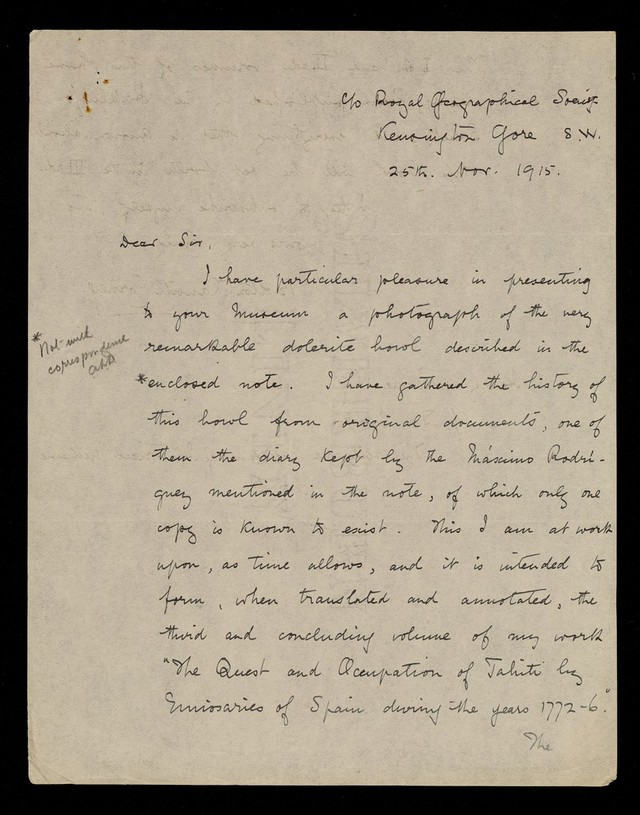 c/o Royal Geographical Society
Kensington Gore S.W.
25th. Nov. 1915.
Dear Sir,
I have particular pleasure in presenting
to your Museum a photograph of the very
remarkable dolerite bowl described in the
*enclosed note. I have gathered the history of
this bowl from original documents, one of
them the diary kept by the Máximo Rodrí-
guez mentioned in the note, of which only one
copy is known to exist. This I am at work
upon, as time allows, and it is intended to
form, when translated and annotated, the
third and concluding volume of my work
"The Quest and Occupation of Tahiti by
Emissaries of Spain during the years 1772-6".
The
*Not with
correspondence